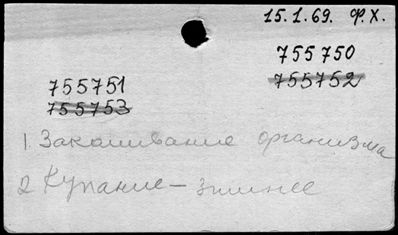 15.1.69. Ф.Х.
755750
755752
755751
755753
1. Закаливание организма
2 Купание - зимнее